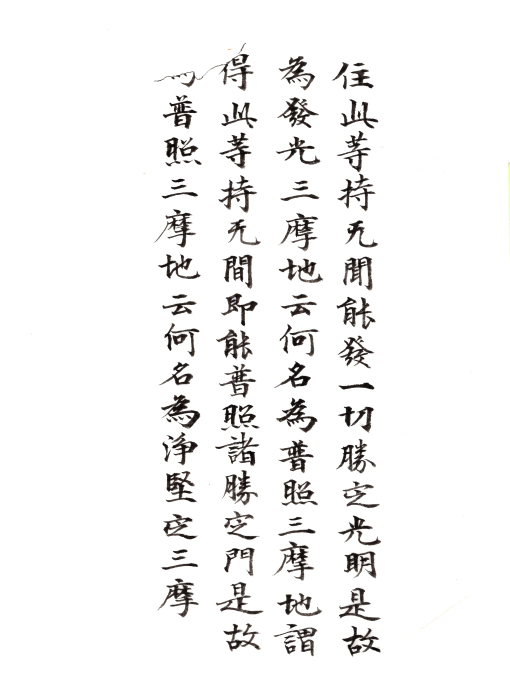 住此等持无聞能發一切勝定光明是故
為發光三摩地云何名為普照三摩地謂
得此等持无間即能普照諸勝定門是故
普照三摩地云何名為淨堅定三摩